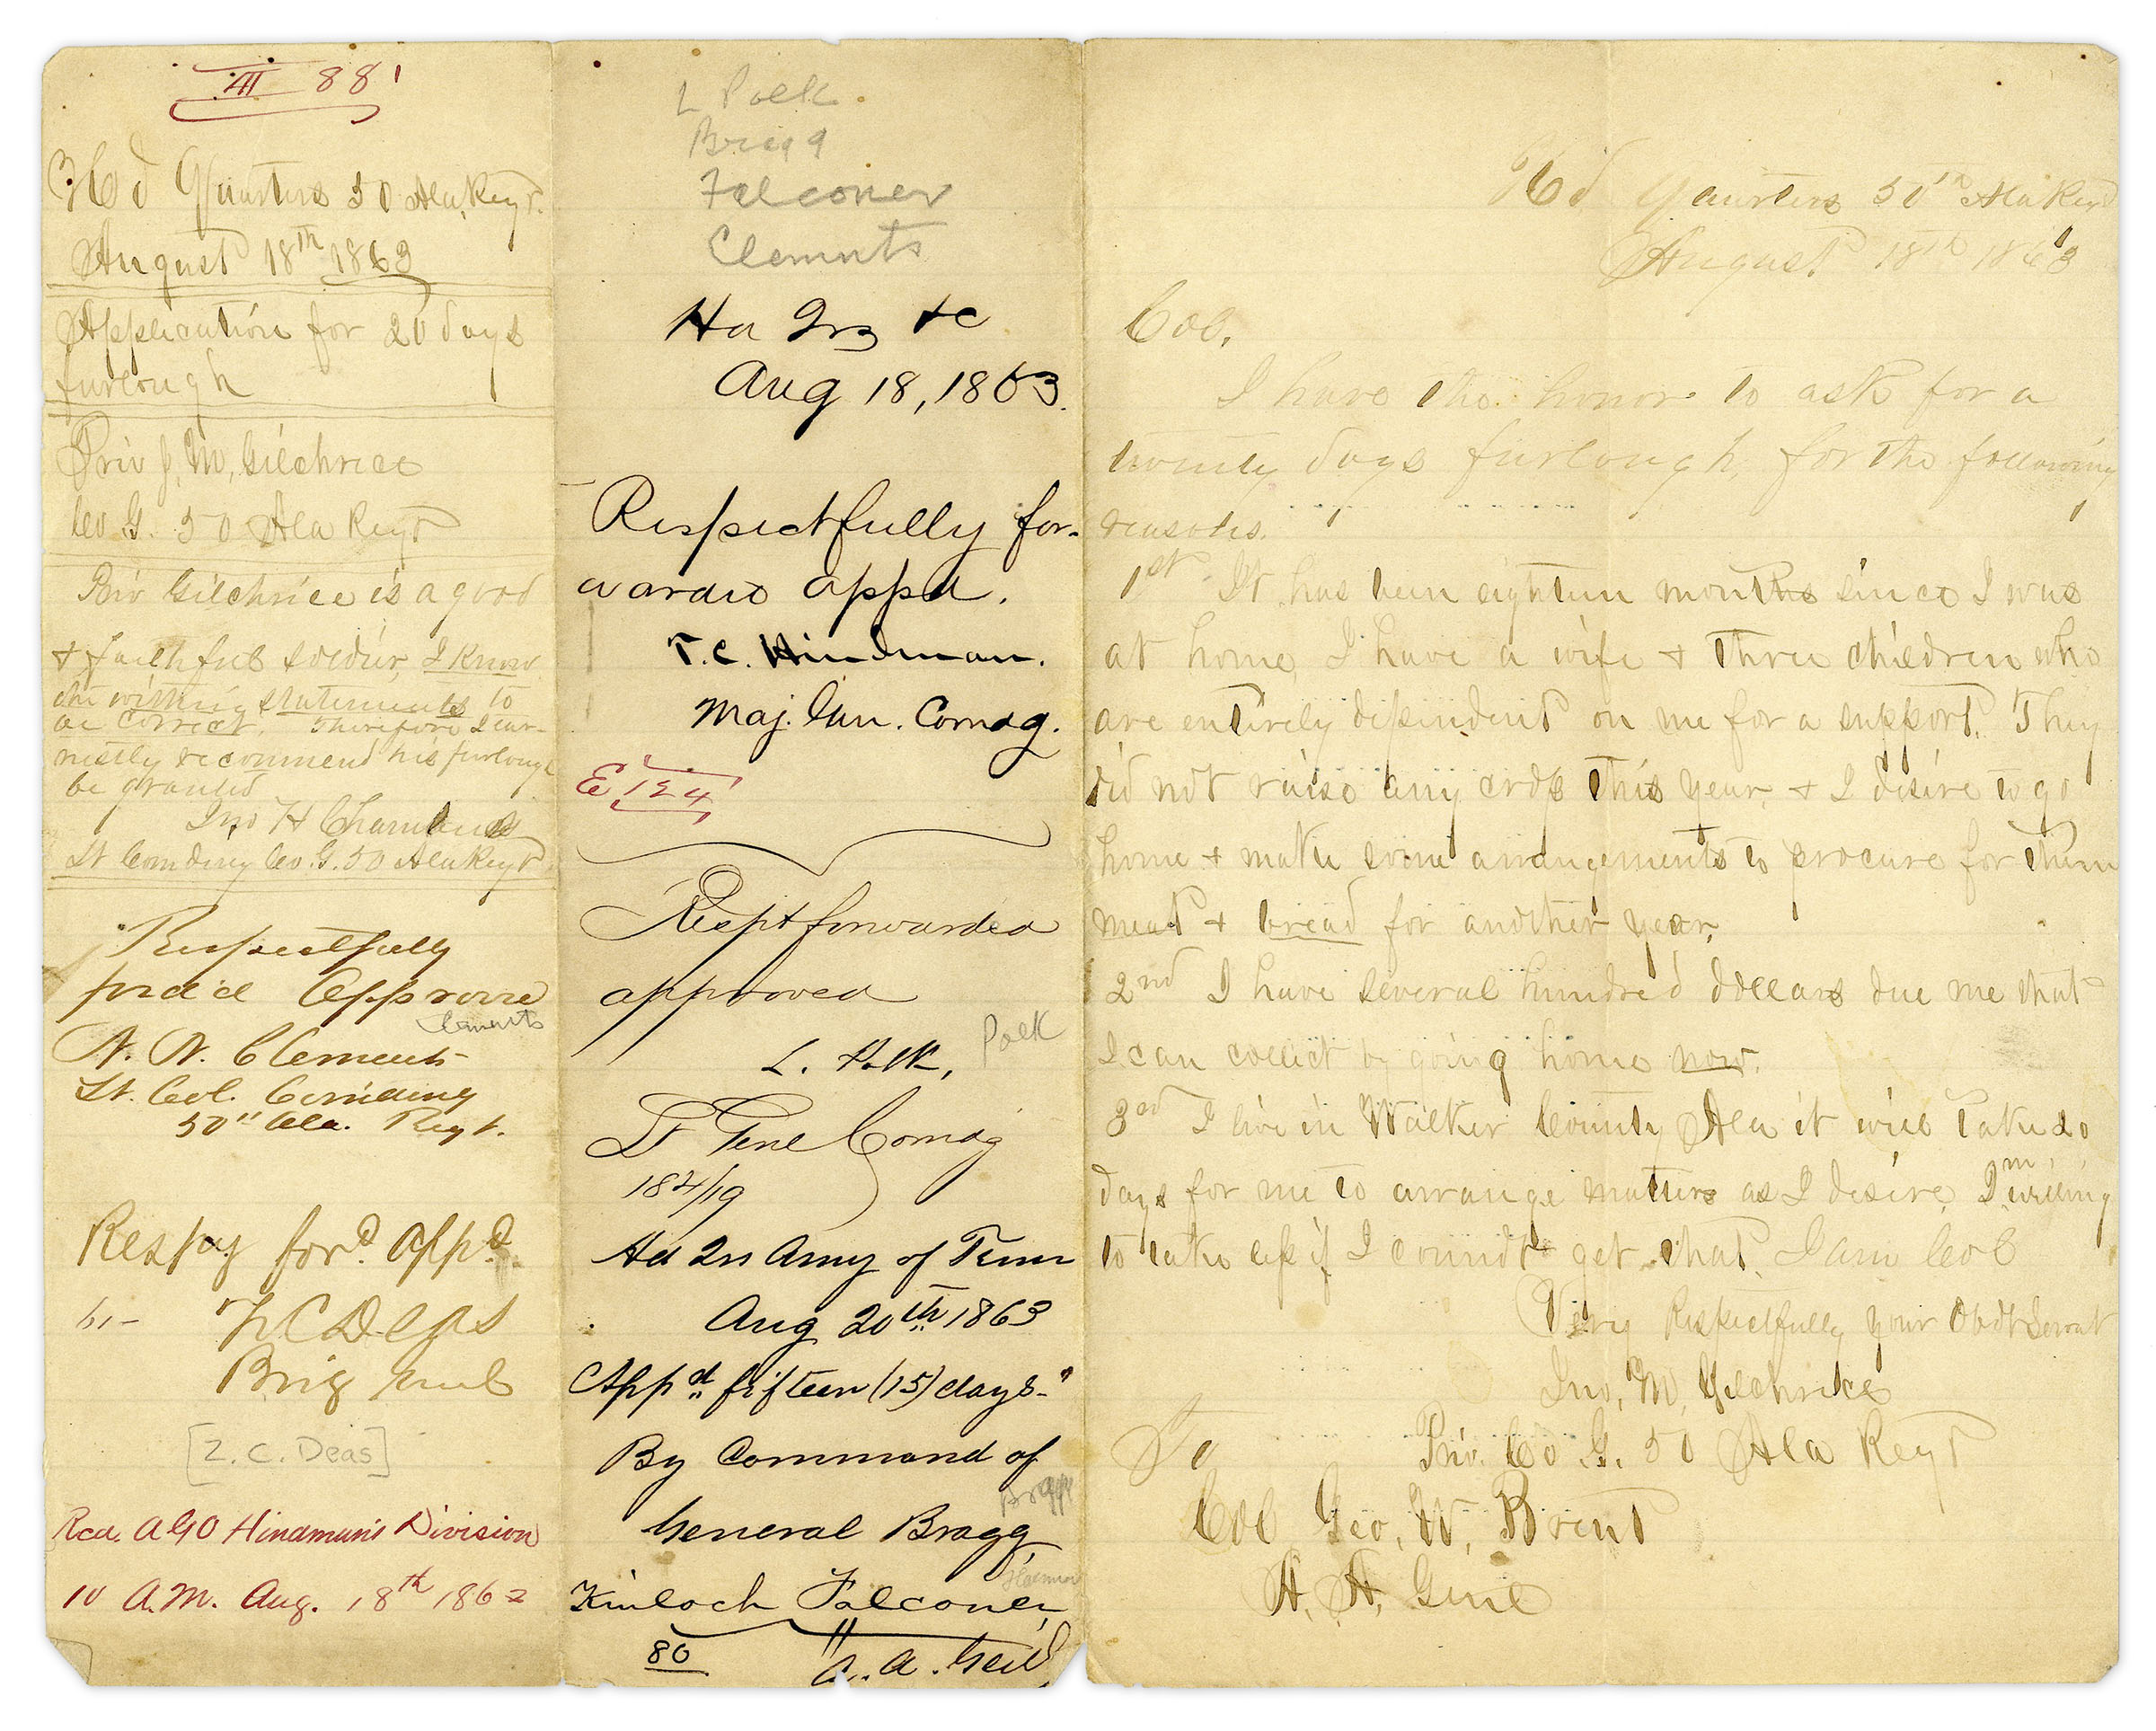 III 881
Hd Quarters 50 Ala, Regt.
August 18th 1863
Application for 20 days
furlough
Priv J, M, Gilchrice
Co G. 50 Ala Regt
Priv Gilchrice is a good
+ faithful soldier, I know
the within statements to
be correct. Therefore I ear-
nestly recommend his furlough
be granted
Jno H Chamblee
Lt Comding Co. G. 50 Ala Regt
Respectfully
ford'd Approve
Clements
N. N. Clements
Lt. Col. Comding
50" Ala. Regt.
Respy ford. appd.
Z C Deas
Brig Genl
[Z. C. Deas]
Rcd. A G O Hindman's Division
10 A.M. Aug. 18th 1862
L Polk
Bragg
Falconer
Clements
Hd Qrs &c
Aug 18, 1863.
Respectfully for-
warded appd.
T. C. Hindman.
Maj. Gen. Comdg.
E 124
Respt forwarded
approved
L. Polk, Polk
Lt Genl Comdg
184/19
Hd Qrs Army of Tenn
Aug 20th 1863
Appd. fifteen (15) days-"
By Command of
Bragg
General Bragg
Falconer
Kinloch Falconer
80 A. A. Genl,
Hd Quarters 50th Ala Regt
August 18th 1863
Col,
I have the honor to ask for a
twenty days furlough, for the following
reasons.
1st It has been eighteen months since I was
at home, I have a wife + three children who
are entirely dependent on me for a support. They
did not raise any crop this year, + I desire to go
home + make some arrangements to procure for them
meat + bread for another year,
2nd I have several hundred dollars due me that
I can collect by going home now.
3rd I live in Walker County Ala it will take 20
days for me to arrange matters as I desire, I m willing
to take less if I coundt get that, I am Col
Very Respectfully your Obdt Servt
Jno, M, Gilchrice
Priv. Co G. 50 Ala Regt
To
Col Geo, W, Brent
A, A, Genl